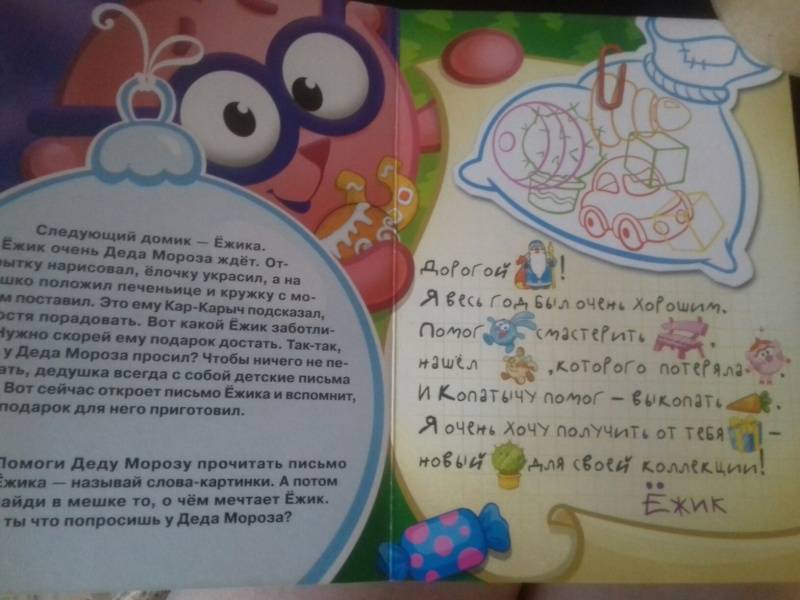 Следующий домик — Ёжика.
Ёжик очень Деда Мороза ждёт. От-
рытку нарисовал, ёлочку украсил, а на
шко положил печеньице и кружку с мо-
м поставил. Это ему Кар-Карыч подсказал,
остя порадовать. Вот какой Ёжик заботли-
Нужно скорей ему подарок достать. Так-так,
у Деда Мороза просил? Чтобы ничего не пе-
ать, дедушка всегда с собой детские письма
Вот сейчас откроет письмо Ёжика и вспомнит,
подарок для него приготовил.
Помоги Деду Морозу прочитать письмо
Ёжика — называй слова-картинки. А потом
найди в мешке то, о чём мечтает Ёжик.
ты что попросишь у Деда Мороза?
Дорогой !
Я весь год был очень хорошим.
Помог смастерить ,
нашёл , которого потеряла .
И Копатычу помог – выкопать .
Я очень хочу получить от тебя –
новый для своей коллекции!
Ёжик